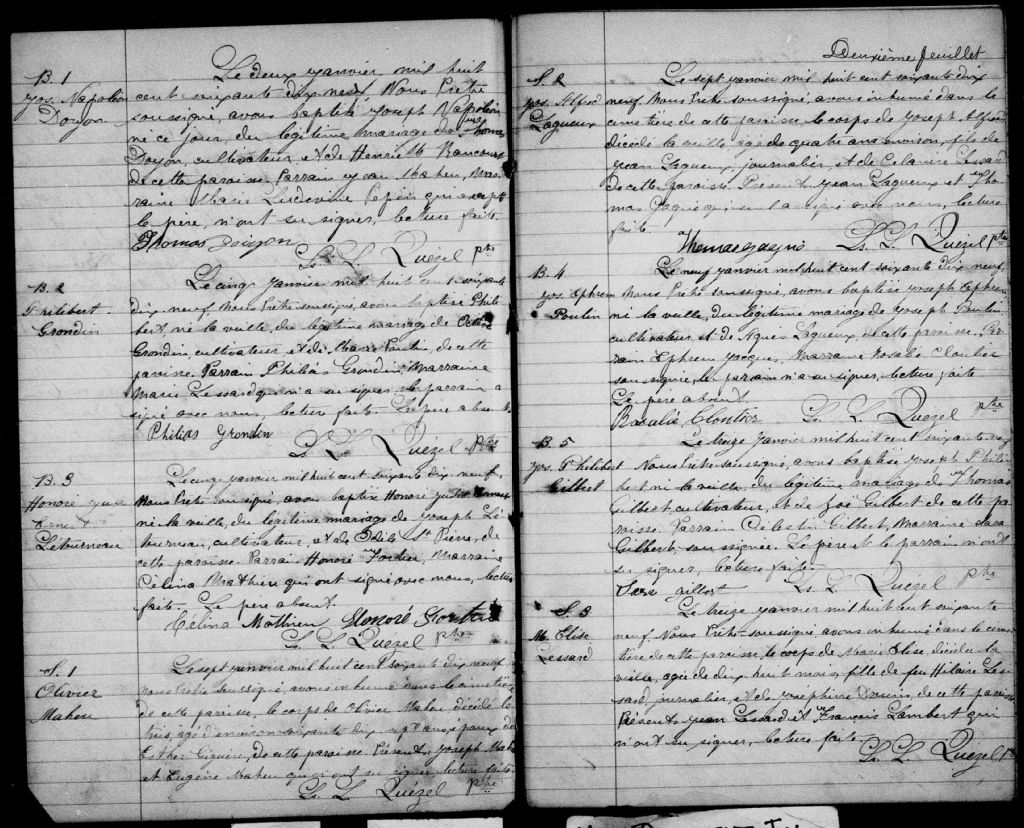 B. 1
Jos. Napoléon
Doyon
Le deux janvier mil huit
cent soixante dix neuf Nous Prêtre
soussigné, avons baptisé Joseph Napoléon
né ce jour, du légitime mariage de Thomas
Doyon, cultivateur, et de Henriette Rancourt
de cette paroisse. Parrain Jean Maheu, Mar-
raine Marie Ludivine Pepin qui excepté
le père, n'ont su signer, lecture faite.
Thomas Doyon
Ls. L. Quézel Ptre
B. 2
Philibert
Grondin
Le cinq Janvier mil huit cent soixante
dix neuf Nous Prêtre soussigné, avons baptisé Phili-
bert né la veille, du légitime mariage de
Grondin, cultivateur, et de Marie Poulin, de cette
paroisse. Parrain Philias Grondin, Marraine
Marie Lessard qui n'a su signer, le parrain a
signé avec nous, lecture faite. Le père absent
Philias Grondin
Ls. L. Quézel Ptre
B. 3
Honoré
Ernest
Létourneau
Le cinq janvier mil huit cent soixante dix neuf,
Nous Prêtre soussigné avons baptisé Honoré
né la veille, du légitime mariage de Joseph Lé-
tourneau, cultivateur, et de Odile St Pierre, de
cette paroisse. Parrain Honoré Fortier, Marraine
Célina Mathieu qui ont signé avec nous, lecture
faite. Le père absent.
Célina Mathieu Honoré Fortier
Ls. L. Quézel Ptre
S. 1
Olivier
Maheu
Le sept janvier mil huit cent soixante dix neuf
nous Prêtre soussigné, avons inhumé dans le cimetière
de cette paroisse, le corps de Olivier Maheu décédé le
trois, agé d'environ soixante dix sept ans, époux de
Esther Giguère, de cette paroisse. Présents, Joseph Maheu
et Eugène Maheu qui n'ont su signer lecture faite.
Ls. L. Quézel Ptre
Deuxième feuillet
S. 2
Jos. Alfred
Lagueux
Le sept janvier mil huit cent soixante dix
neuf, Nous Prêtre soussigné, avons inhumé dans le
cimetière de cette paroisse le corps de Joseph Alfred
décédé la veille agé de quatre ans environ, fils de
Jean Lagueux journalier, et de Célanire Lessard
de cette paroisse. Présents Jean Lagueux et Tho-
mas Gagné qui seul a signé avec nous, lecture
faite.
Thomas gagné Ls. L. Quézel Ptre
B. 4
Jos. Ephrem
Poulin
Le neuf janvier mil huit cent soixante dix neuf,
Nous Prêtre soussigné, avons baptisé Joseph Ephrem
né la veille, du légitime mariage de Joseph Poulin,
cultivateur et de Agnès Lagueux de cette paroisse. Par-
rain Ephrem Jacques, Marraine Rosalie Cloutier
soussignée, le parrain n'a su signer, lecture faite
Le père absent
Rosalie Cloutier Ls. L. Quézel Ptre
B. 5
Jos. Philibert
Gilbert
Le treize Janvier mil huit cent soixante dix
Nous Prêtre soussigné, avons baptisé Joseph Phili-
bert né la veille, du légitime mariage de Thomas
Gilbert, cultivateur, et de Zoé Gilbert de cette pa-
roisse. Parrain Célestin Gilbert, Marraine Sara
Gilbert, soussignée. Le père et le parrain n'ont
su signer, lecture faite.
Ls. L. Quézel Ptre
S. 3
M. Elise
Lessard
Le treize janvier mil huit cent soixante
neuf Nous Prêtre soussigné avons inhumé dans le cime-
tière de cette paroisse le corps de Marie Elise décédée la
veille, agée de dix huit mois, fille de feu Hilaire Les-
sard, journalier, et de Joséphine Drouin, de cette paroisse
Présents Jean Lessard et François Lambert qui
n'ont su signer, lecture faite.
Ls. L. Quézel Ptre